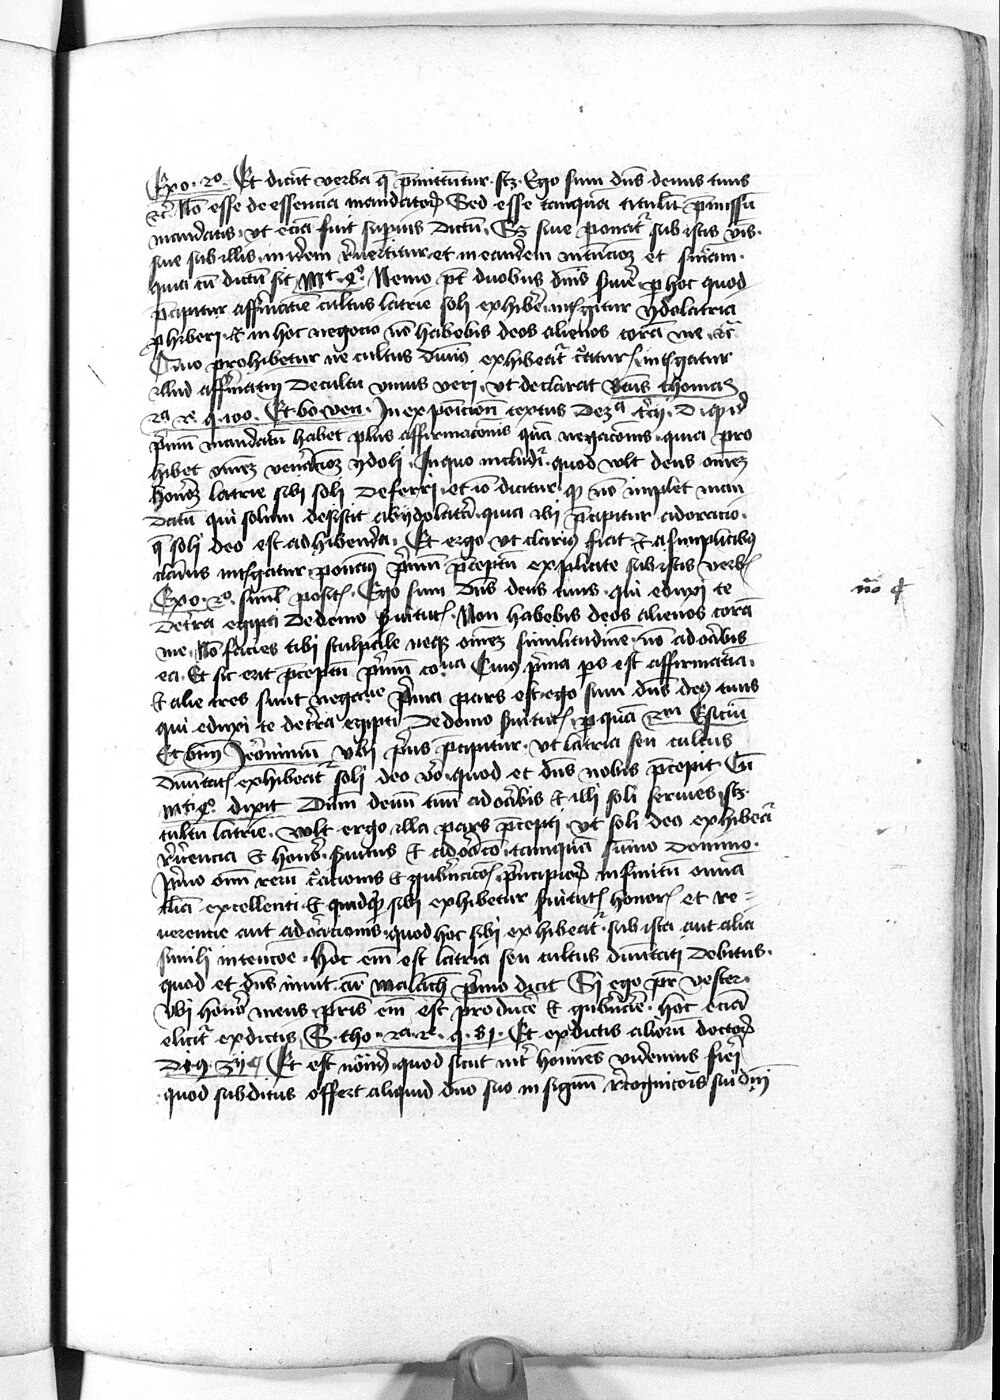 Exo. 20. Et dicūt verba q̄ p̄mittuntur. scz. Ego sum dn̄s deus tuus
etc̄. Nō esse de essencia mandatoꝝ Sed esse tanquā titulū p̄missū
mandatis. ut eciā fuit sup̄ius dictū. Et siue ponat᷑ sub istis v̄bis.
siue sub illis. in idem reuertitur et in eandem intencionē et sn̄iam.
quia cū dictū sit Mt. 6º. Nemo pt̄ duobus dn̄is s̄uire p hoc quod
p̄cipitur affirmatiue cultus latrie soli exhibēi. intelligitur ydolatria
phiberi. Et in hoc negocio nō habebis deos alienos corā me. etc̄
Quo prohibetur ne cultus diuin᷒ exhibeat᷑ creature. intelligatur
illud affirmatiuū de cultu unius veri. ut declarat btūs thomas
2ª 2e. q. 100. Et bo. ven. In exposicion textus
primū mandatū habet plus affirmacionis quā negacionis. quia pro
hibet om̄em ven̄acionē ydoli. In quo includit᷑. quod vult deus om̄em
honorē latrie sibi soli deferri. et iō dicitur. q̄ nō implet man
datū qui solum desistit ab ydolatria. quia ibi p̄cipitur adoracio.
q̄ soli deo est adhibenda. Et ergo ut clarius fiat. Et a simplicibus
clarius intelligatur. ponam᷒ primū p̄ceptū explicite sub istis verbis
Exo. 20. simul positis. Ego sum dn̄s deus tuus. qui eduxi te
de terra egipti de domo s̄uitutis. Non habebis deos alienos corā
me. Nō facies tibi sculptile neqꝫ om̄em similitudinē. nō adorabis
ea. Et sic erit p̄ceptū primū Cuius prima ps̄ est affirmatiua.
Et alie tres sunt negatiue prima pars est. ego sum dn̄s deus tuus
qui eduxi te de terra egipti de domo s̄uitutis. p quā
Et btm̄ Jeronimum ubi prius p̄cipitur. ut latria seu cultus
diuinitatis exhibeat᷑ soli deo vero. quod et dn̄s nobis p̄cepit Cū
Mt. 4º. dixit Dn̄m deum tuū adorabis et illi soli seruies. scz.
cultū latrie. vult ergo illa pars p̄cepti. ut soli deo exhibeat᷑
reuerencia et honor. s̄uitus et adoracio. tanquā sūmo domino.
primo om̄i rerū creacionis et gubernacionis principio. infinitū omnia
alia excellenti. Et quidquid sibi exhibetur s̄uitutis honoris et re=
uerencie aut adoracionis. quod hoc sibi exhibeat᷑. sub ista aut alia
simili intencōe. Hoc em̄ est latria seu cultus diuinitati debitus.
quod et dn̄s innuit. cū malach. primo dicit Si ego pr̄ vester.
ubi honor meus. pr̄is em̄ est producere et gubernare. Hoc eciā
elicit᷑ ex dictis S. tho. 2ª. 2e. q. 81. Et ex dictis aliorū doctoꝝ
Et est notandū. quod sicut int̄ homines videmus fieri
quod subditus offert aliquid dn̄o suo in signum recognicionis sui dn̄ij